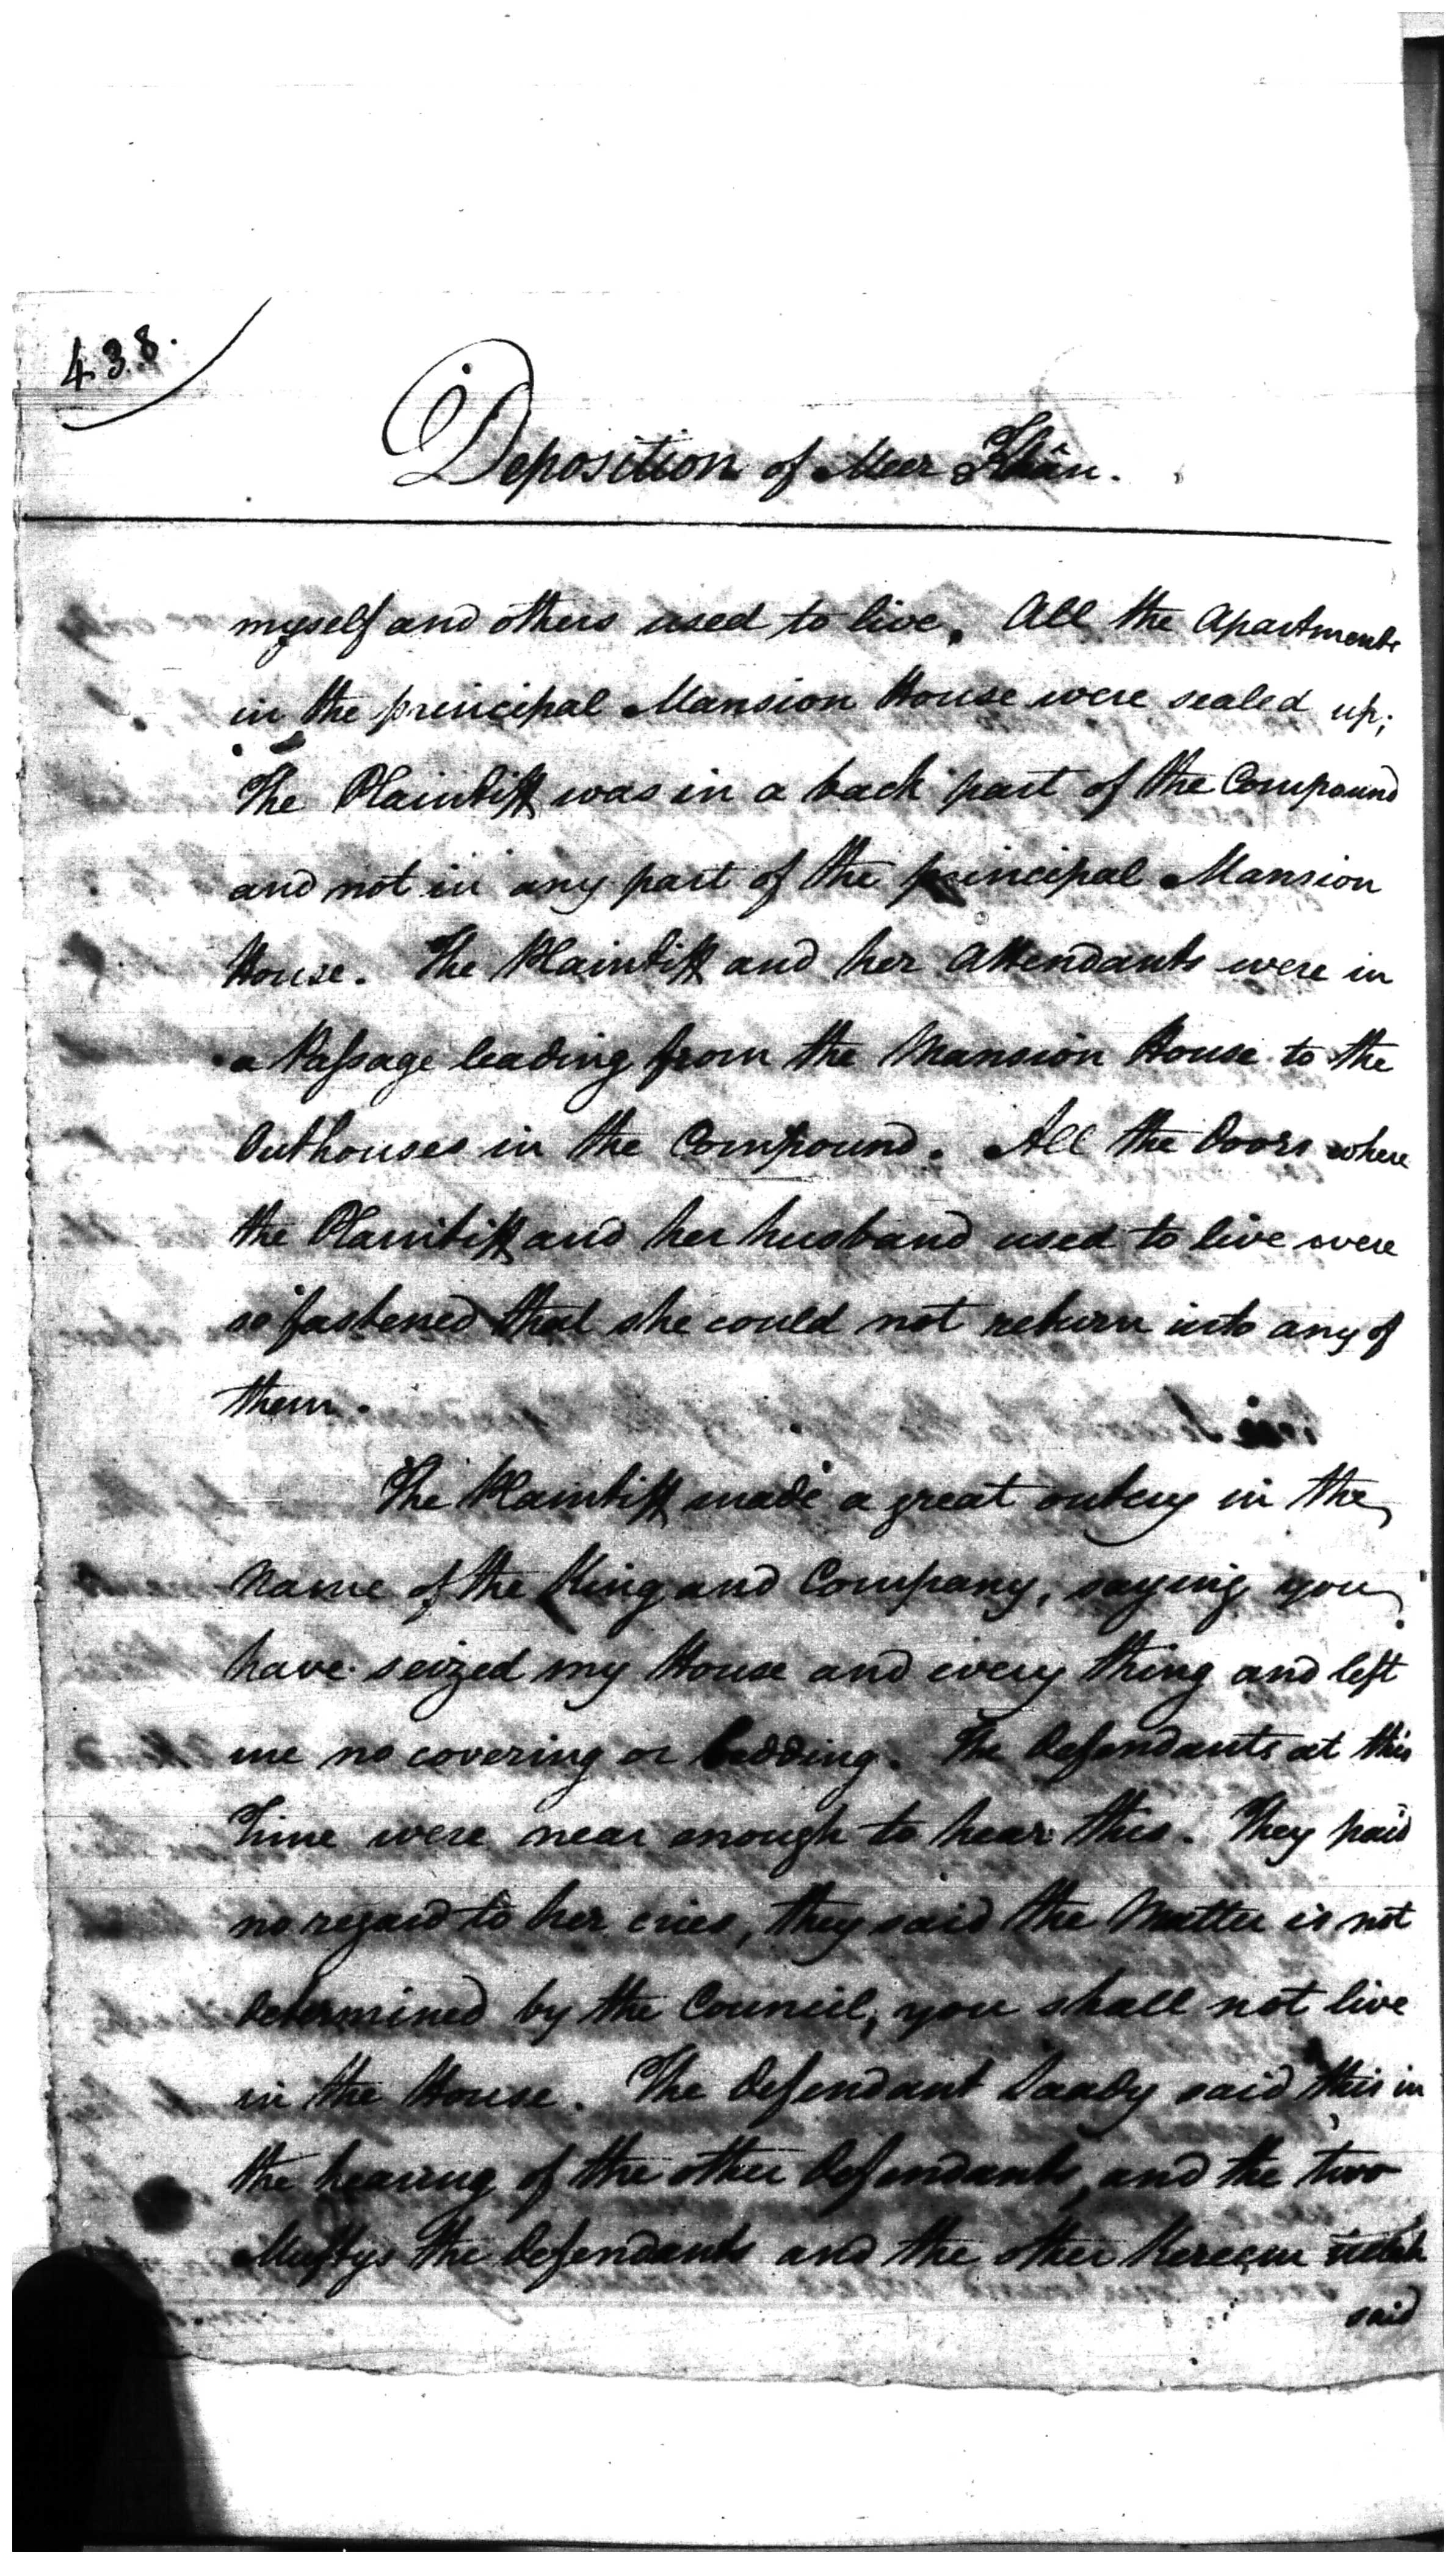 438.
Deposition of Meer Khân.
myself and others used to live. All the Apartments
in the principal Mansion House were sealed up;
The Plaintiff was in a back part of the Compound
and not in any part of the principal Mansion
House. The Plaintiff and her Attendants were in
a Passage leading from the Mansion House to the
Outhouses in the Compound. All the Doors where
the Plaintiff and her husband used to live were
so fastened that she could not return into any of
them.
The Plaintiff made a great outcry in the
Name of the King and Company, saying you
have seized my House and every thing and left
me no covering or bedding. The Defendants at this
Time were near enough to hear this. They paid
no regard to her cries, they said the Matter is not
determined by the Council, you shall not live
in the House. The Defendant Saady said this in
the hearing of the other Defendants, and the two
Muftys the Defendants and the other Hereçur
said